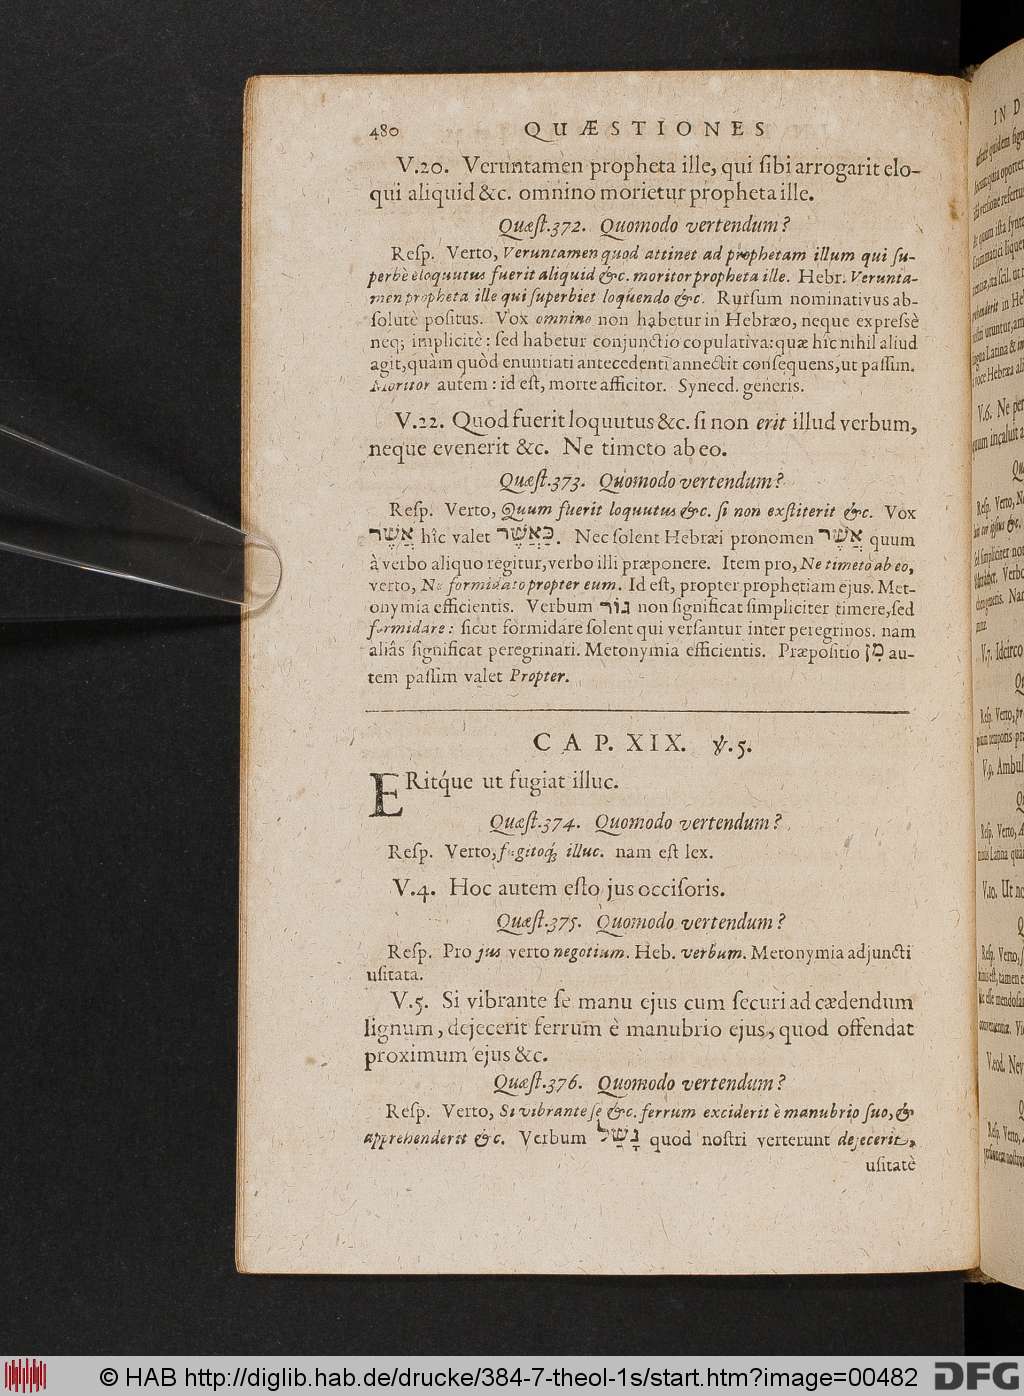 480 QUÆSTIONES
V.20. Veruntamen propheta ille, qui ſibi arrogarit elo-
qui aliquid &c. omnino morietur propheta ille.
Quæſt.372. Quomodo vertendum?
Reſp. Verto, Veruntamen quod attinet ad prophetam illum qui ſu-
perbè eloquutus fuerit aliquid &c. moritor propheta ille. Hebr. Verunta-
men propheta ille qui ſuperbiet loquendo &c. Rurſum nominativus ab-
ſolutè poſitus. Vox omnino non habetur in Hebræo, neque expreſsè
neq; implicitè: ſed habetur conjunctio copulativa: quæ hîc nihil aliud
agit, quàm quòd enuntiati antecedenti annectit conſequens, ut paſſim.
Moritor autem: id eſt, morte afficitor. Synecd. generis.
V.22. Quod fuerit loquutus &c. ſi non erit illud verbum,
neque evenerit &c. Ne timeto ab eo.
Quæſt.373. Quomodo vertendum?
Reſp. Verto, Quum fuerit loquutus &c. ſi non exſtiterit &c. Vox
אֲשֶׁר hîc valet כַּאֲשֶׁר. Nec ſolent Hebræi pronomen אֲשֶׁר quum
à verbo aliquo regitur, verbo illi præponere. Item pro, Ne timeto ab eo,
verto, Ne formidato propter eum. Id eſt, propter prophetiam ejus. Met-
onymia efficientis. Verbum גור non ſignificat ſimpliciter timere, ſed
formidare: ſicut formidare ſolent qui verſantur inter peregrinos. nam
aliâs ſignificat peregrinari. Metonymia efficientis. Præpoſitio מִן au-
tem paſſim valet Propter.
CAP. XIX. ℣.5.
ERitq́ue ut fugiat illuc.
Quæſt.374. Quomodo vertendum?
Reſp. Verto, fugitoq́; illuc. nam eſt lex.
V.4. Hoc autem eſto jus occiſoris.
Quæſt.375. Quomodo vertendum?
Reſp. Pro jus verto negotium. Heb. verbum. Metonymia adjuncti
uſitata.
V.5. Si vibrante ſe manu ejus cum ſecuri ad cædendum
lignum, dejecerit ferrum è manubrio ejus, quod offendat
proximum ejus &c.
Quæſt.376. Quomodo vertendum?
Reſp. Verto, Si vibrante ſe &c. ferrum exciderit è manubrio ſuo, &
apprehenderit &c. Verbum נָשַׁל quod noſtri verterunt dejecerit,
uſitatè
© HAB http://diglib.hab.de/drucke/384-7-theol-1s/start.htm?image=00482
DFG